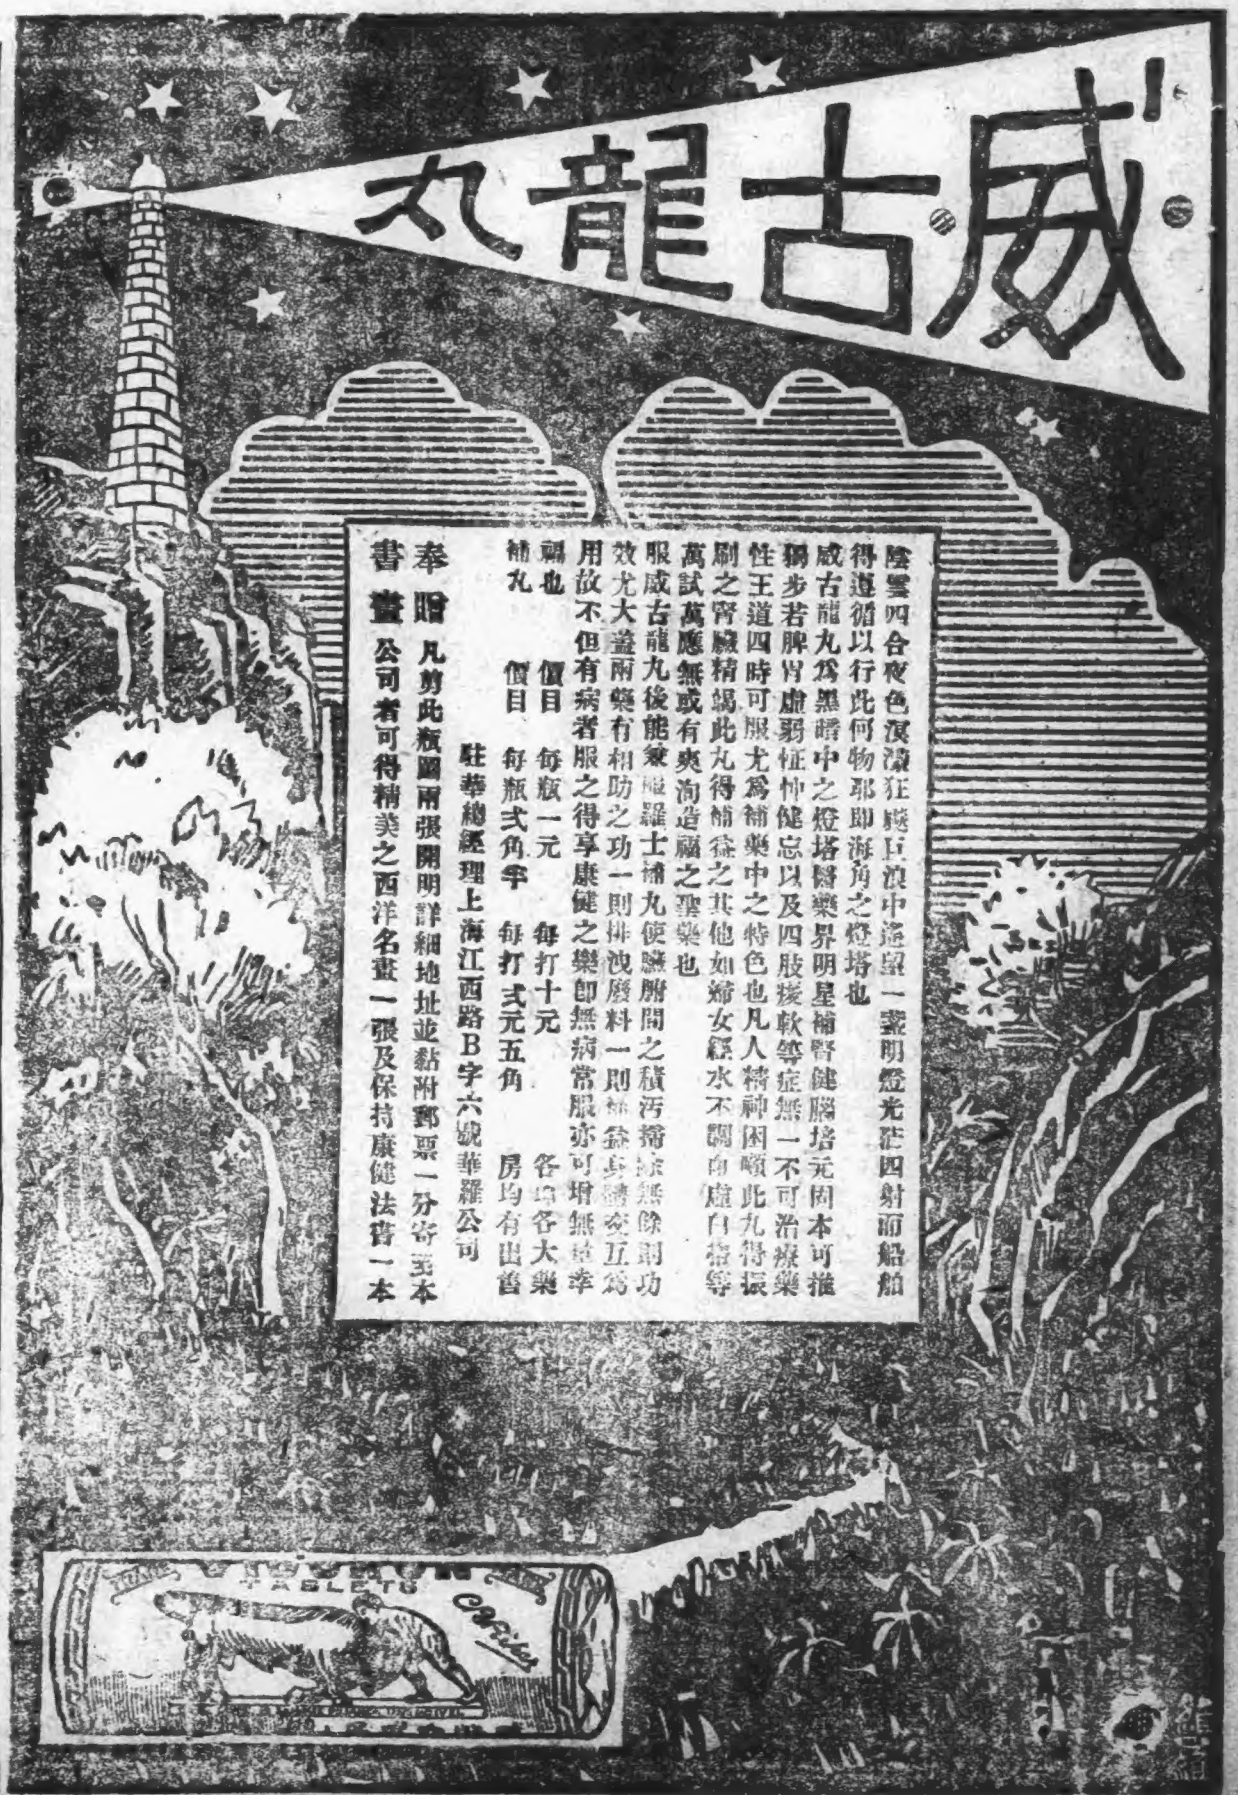 威古龍丸
陰雲四合夜色溟濛狂飈巨浪中遙望一盞明燈光茫四射而船舶
得遵循以行此何物耶即海角之燈塔也
威古龍丸爲黑暗中之燈塔醫藥界明星補腎健腦培元固本可推
獨步若脾胃虛弱怔忡健忘以及四肢痠軟等症無一不可治療藥
性王道四時可服尤爲補藥中之特色也凡人精神困頓此丸得振
刷之腎臟精竭此丸得補益之其他如婦女經水不調血虛白帶等
萬試萬應無或有爽洵造福之聖藥也
服威古龍丸後能兼服羅士補丸使臟腑間之積污掃除無餘則功
效尤大蓋兩藥有相助之功一則排洩廢料一則補益身體交互爲
用故不但有病者服之得享康健之樂卽無病常服亦可增無量幸
福也 價目 每瓶一元 每打十元 各埠各大藥
補丸 價目 每瓶弍角半 每打弍元五角 房均有出售
駐華總經理上海江西路B字六號華羅公司
奉贈 凡剪此瓶圖兩張開明詳細地址並黏附郵票一分寄至本
書畫 公司者可得精美之西洋名畫一張及保持康健法書一本
TABLETS